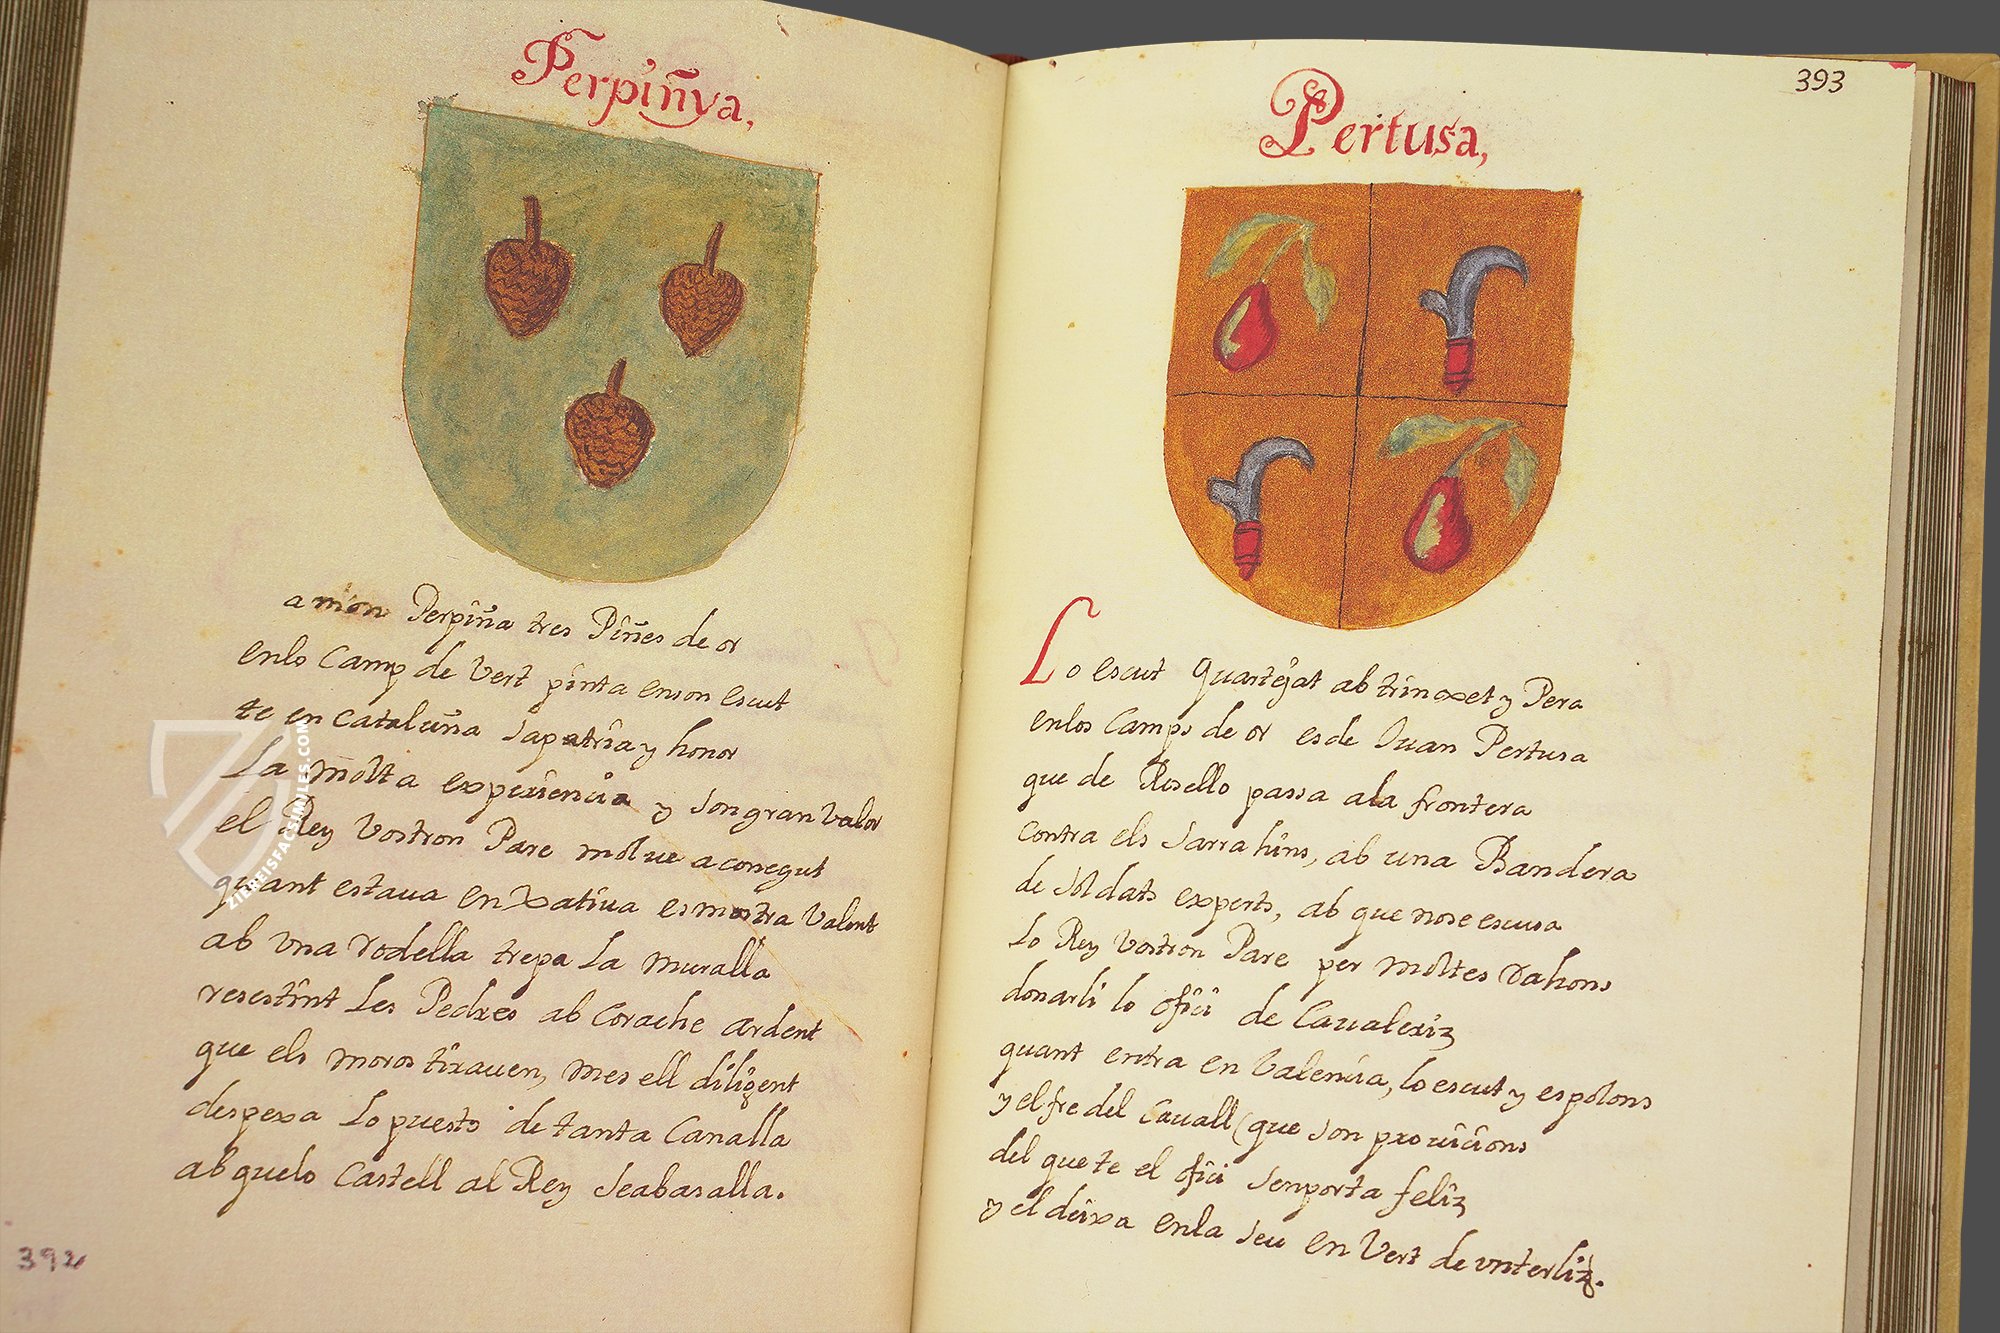 Perpiñya,
a mon Perpiña tres Piñes de or
enlo Camp de Vert pinta enson escut
te en Cataluña sapatria y honor
La molta experiencia y songran Valor
el Rey Vostron Pare molue aconegut
quant estaua en Xatiua esmostra Valent
ab Vna rodella trepa La muralla
resestint Les Pedres ab Corache ardent
que els moros tirauen, mes ell diligent
despexa Lo puesto de tanta Canalla
ab quelo Castell al Rey seabasalla.
392
ZIEREISFACSIMILES.COM
393
Pertusa,
Lo escut quartejat ab trinxet y Pera
enlos Camps de or es de Juan Pertusa
que de Rosello passa ala frontera
contra els Sarrahins, ab una Bandera
de soldats experts, ab que nose escusa
Lo Rey Vostron Pare per moltes rahons
donarli lo ofici de Caualeriz
quant entra en Valencia, lo escut y espolons
y el fre del Cauall (que son prouicions
del que te el ofici senporta feliz
y el deixa enla seu en Vert de vnterliz.